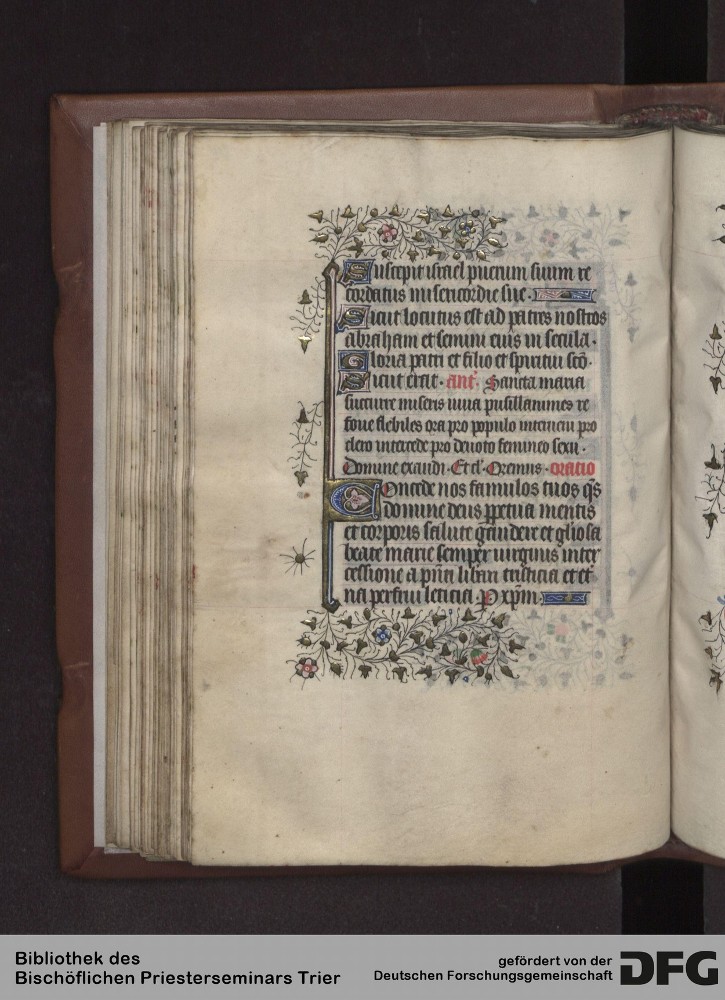 Suscepit israel puerum suum re
cordatus misericordie sue.
Sicut locutus est ad patres nostros
abraham et semini eius in secula.
Gloria patri et filio et spiritui scō.
Sicut erat. ant. Sancta maria
succurre miseris iuua pusillanimes re
foue flebiles ora pro populo interueni pro
clero intercede pro deuoto femineo sexu.
Domine exaudi. Et cl. Oremus. oratio
Concede nos famulos tuos q̄s
domine deus ꝑpetua mentis
et corporis salute gaudere et gliosa
beate marie semper uirginis inter
cessione a pn̄ti libari tristicia et et̄
na perfrui leticia. P xp̄m.
Bibliothek des
Bischöflichen Priesterseminars Trier
gefördert von der
Deutschen Forschungsgemeinschaft
DFG